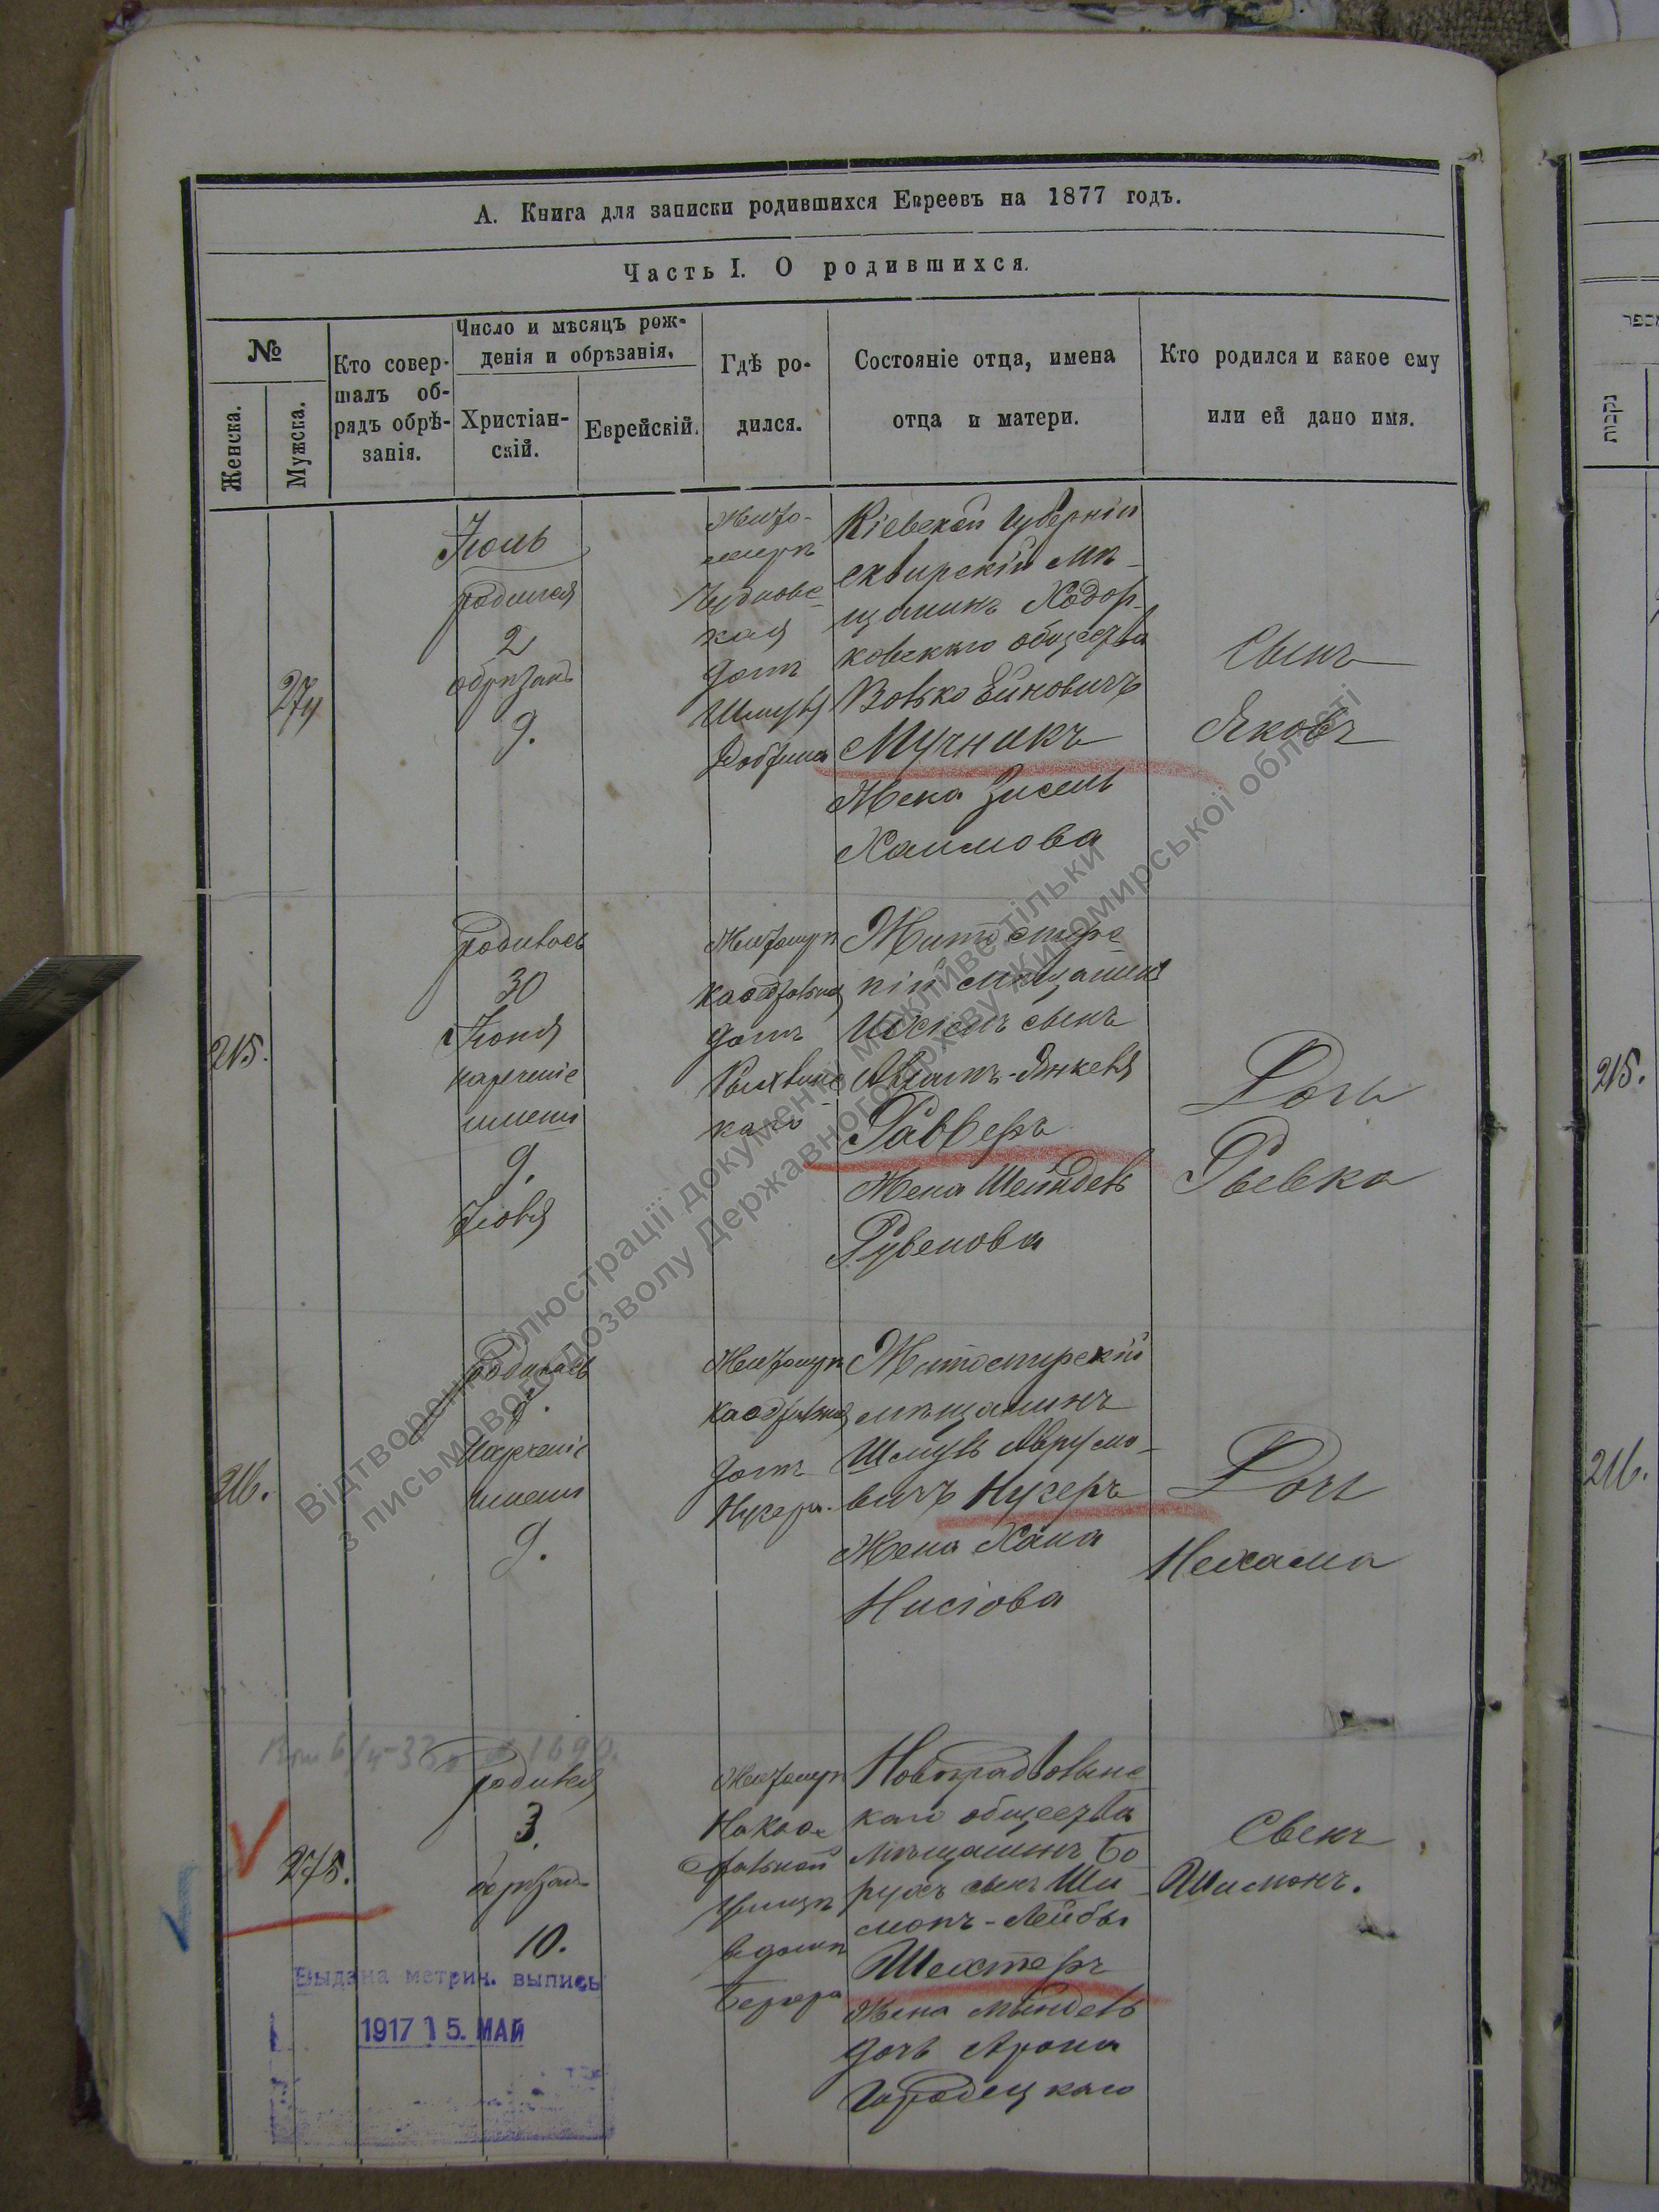 А. Книга для записки родившихся Евреевъ на 1877 годъ.
Часть I. О родившихся.
№
Женска.
Мужска.
Кто совер-
шалъ об-
рядъ обрѣ-
занія.
Число и мѣсяцъ рож-
денія и обрѣзанія.
Христіан-
скій.
Еврейскій.
Гдѣ ро-
дился.
Состояніе отца, имена
отца и матери.
Кто родился и какое ему
или ей дано имя.
274
Іюль
родился
2
обрѣзанъ
9.
Житo-
мирѣ
Чудновс-
кая
домъ
Шмуля
Кіевской Губерніи
сквирскій мѣ-
щанинъ Ходор-
ковскаго общества
Волько Ейновичъ
Мучникъ
Жена Зисель
Хаимова
Сынъ
Яковъ
215.
родилась
30
Іюня
нареченіе
имени
9.
Іюля
Житомирѣ
домъ
Житомирс-
кій мѣщанинъ
сынъ
Янкеля
Жена Шейндель
Рувенова
Дочь
Ривка
216.
родилась
нареченіе
имени
9.
Житомирѣ
домъ
Нухера.
Житомирскій
мѣщанинъ
Шмуль Аврумо-
вичъ Нухеръ
Жена Хана
Нисіова
Дочь
Нехама
275.
родился
3.
обрѣзанъ
10.
Житомирѣ
улицѣ
в домѣ
Бергера
Новоградволынс-
каго общества
Мѣщанинъ Бо
рухъ сынъ Ши
монъ-Лейбы
Шехтеръ
Жена Миндель
дочь Арона
Городецкаго
Сынъ
Шимонъ.
Выдана метрич. выпись
1917 15. МАЙ
Відтворення ілюстрації документу можливе тільки
з письмового дозволу Державного архіву Житомирської області
מספר
נקבות
215.
216.